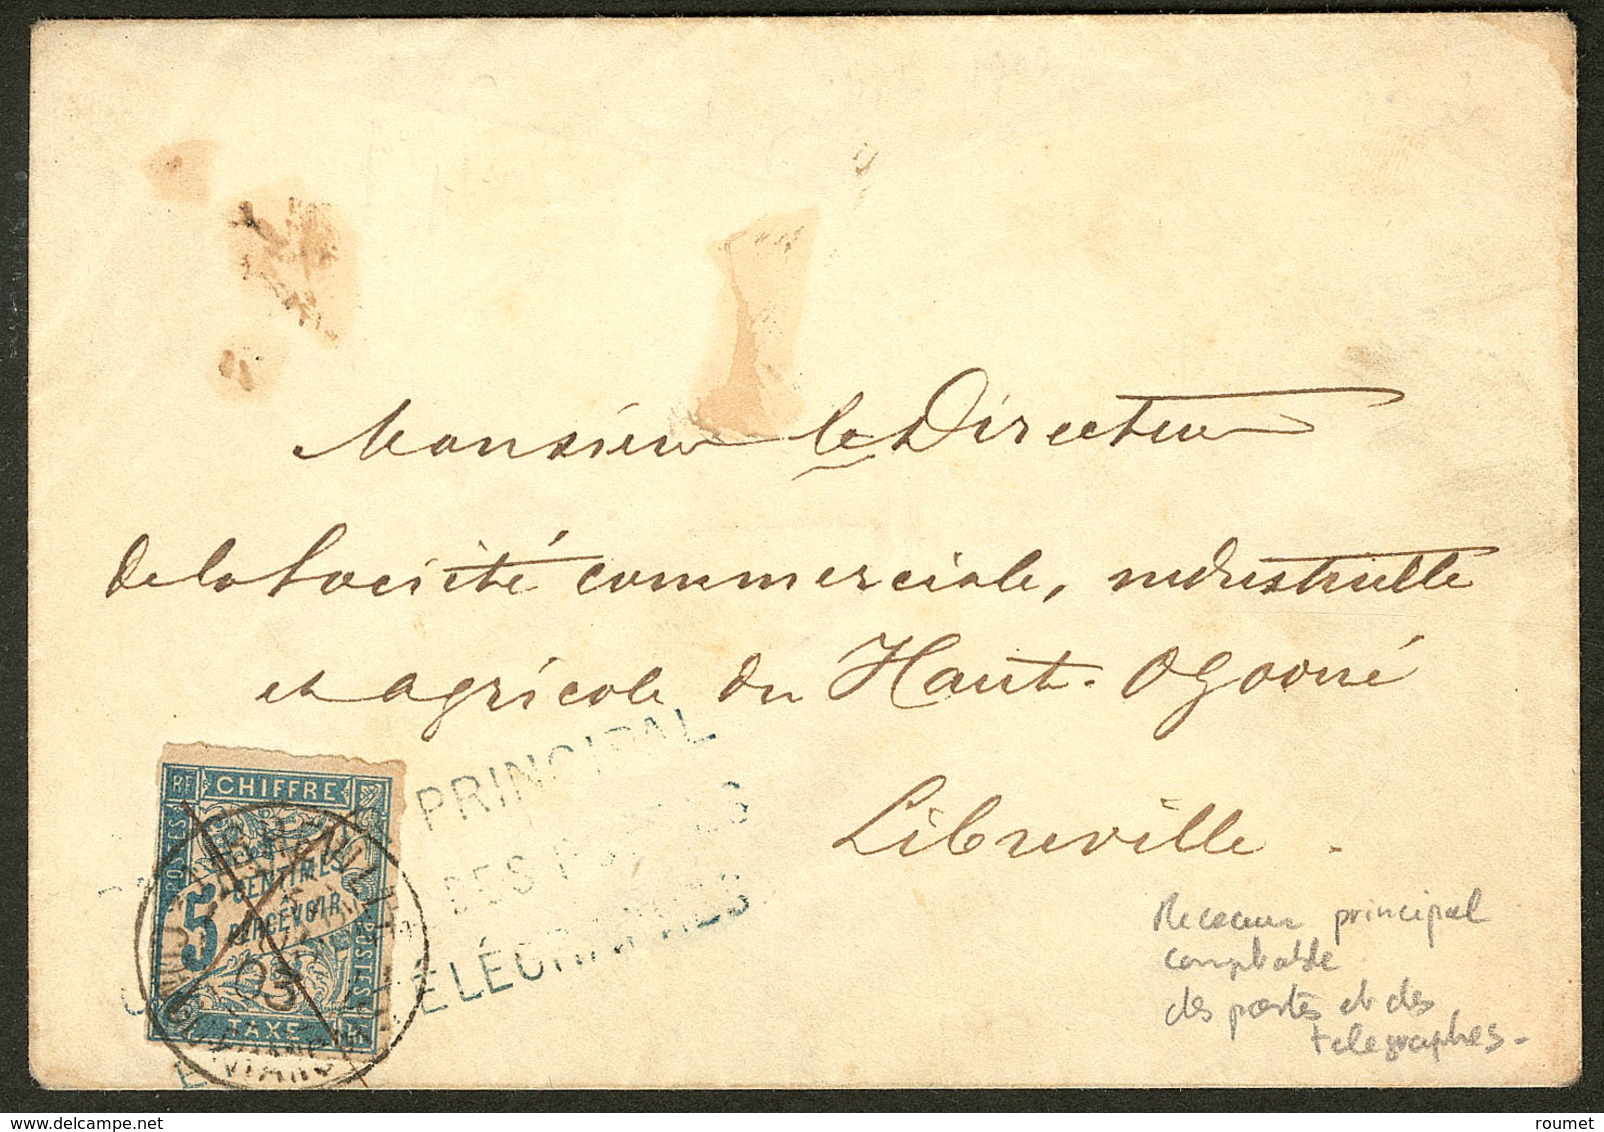 Monsieur le Directeur
de la Société commerciale, industrielle
et agricole du Haut-Ogooué
Libreville.
PRINCIPAL
DES POSTES
TÉLÉGRAPHES
RF CHIFFRE
POSTES
5
CENTIMES
À
PERCEVOIR
POSTES
TAXE
03
Receveur principal
comptable
des postes et des
telegraphes -
roumet